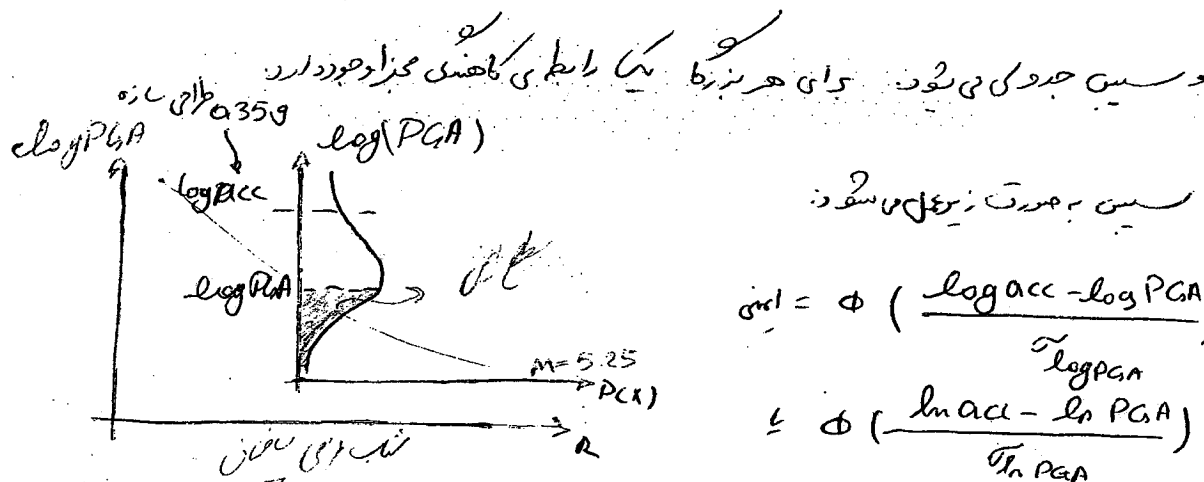 و سپس جدولی می شود. برای هر بزرگا یک رابطه ی کاهندگی مجزا وجود دارد.
طراحی سازه 0.35g
log PGA
log acc
log(PGA)
سپس به صورت زیر عمل می شود:
log PGA
ایمنی = Φ ( log acc - log PGA / σ log PGA )
M=5.25
P(x)
R
یا Φ ( ln acc - ln PGA / σ ln PGA )